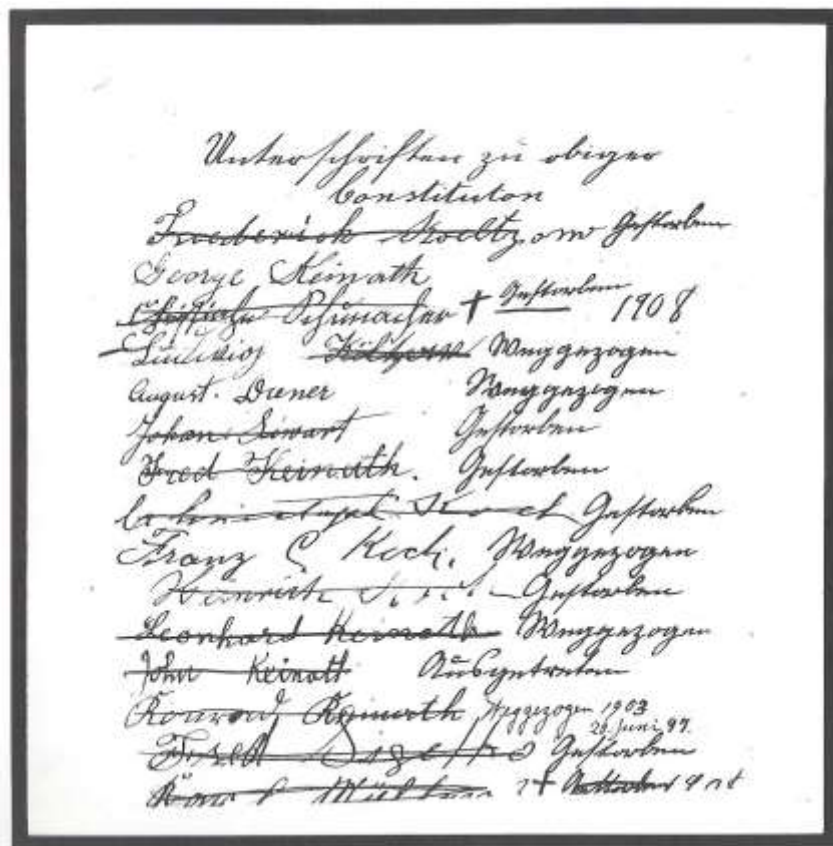 Unterschriften zu obiger
Constituton
Frederich Gestorben
George Keinath
Schumacher † Gestorben 1908
Ludwig Weggezogen
August. Diener Weggezogen
Johan Siwart Gestorben
Fred Keinath. Gestorben
Koch Gestorben
Franz C Koch. Weggezogen
Heinrich Gestorben
Leonhard Keinath Weggezogen
John Keinath Ausgetreten
Konrad Keinath Weggezogen 1903
20. Juni 97.
Fred Gestorben
†